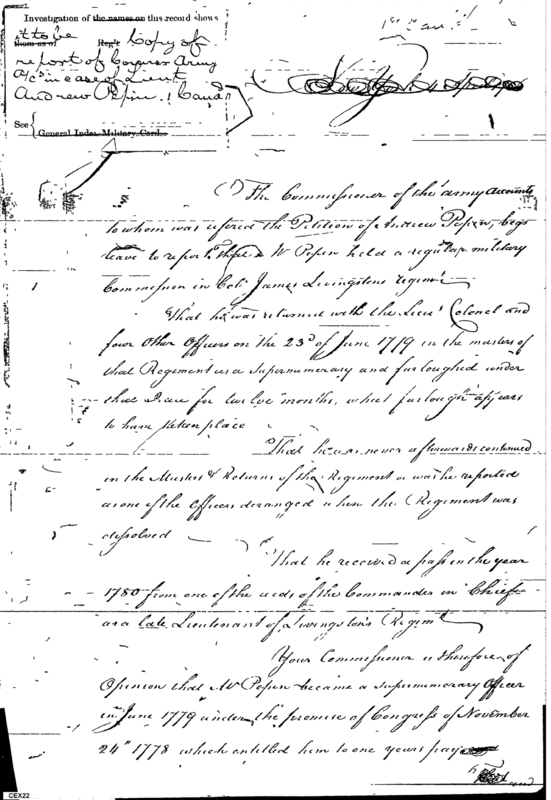 Investigation of the names on this record shows
it to be
them as of Reg't Copy of
report of Congress Army
a/c in case of Lieut
Andrew Pepin 1 Canad
See { General Index Military Card.
(1) The Commissioner of the army accounts
to whom was refered the Petition of Andrew Pepen, begs
leave to report, that Mr Pepen held a regular military
Commission in Colo James Livingstons regemt
That he was returned with the Lieut Colonel and
four Other Officers on the 23d of June 1779 in the musters of
that Regiment as a Supernumerary and furloughed under
that Date for twelve months, which furlough appears
to have taken place
That he was never afterwards continued
in the Musters & Returns of the Regiment or was he reported
as one of the Officers deranged when the Regiment was
dissolved
That he received a pass in the year
1780 from one of the aids of the Commander in Chief
as a late Lieutenant of Livingston's Regimt
Your Commissioner is therefore of
Opinion that Mr Pepen became a Supernumerary Officer
in June 1779 under the promise of Congress of November
24th 1778 which entitled him to one years pay
and
CEX22